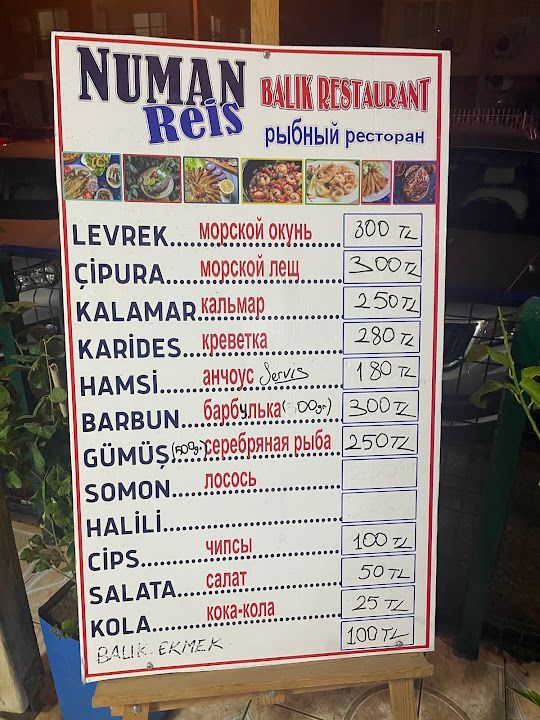 NUMAN
Reis
BALIK RESTAURANT
рыбный ресторан
LEVREK.... морской окунь 300 TL
ÇİPURA.... морской лещ 300 TL
KALAMAR кальмар 250 TL
KARİDES... креветка 280 TL
HAMSİ.... анчоус Servis 180 TL
BARBUN. барбулька 300 TL
GÜMÜŞ (500g.) серебряная рыба 250 TL
SOMON.... лосось
HALİLİ....
CİPS.... чипсы 100 TL
SALATA.... салат 50 TL
KOLA.... кока-кола 25 TL
BALIK EKMEK 100 TL